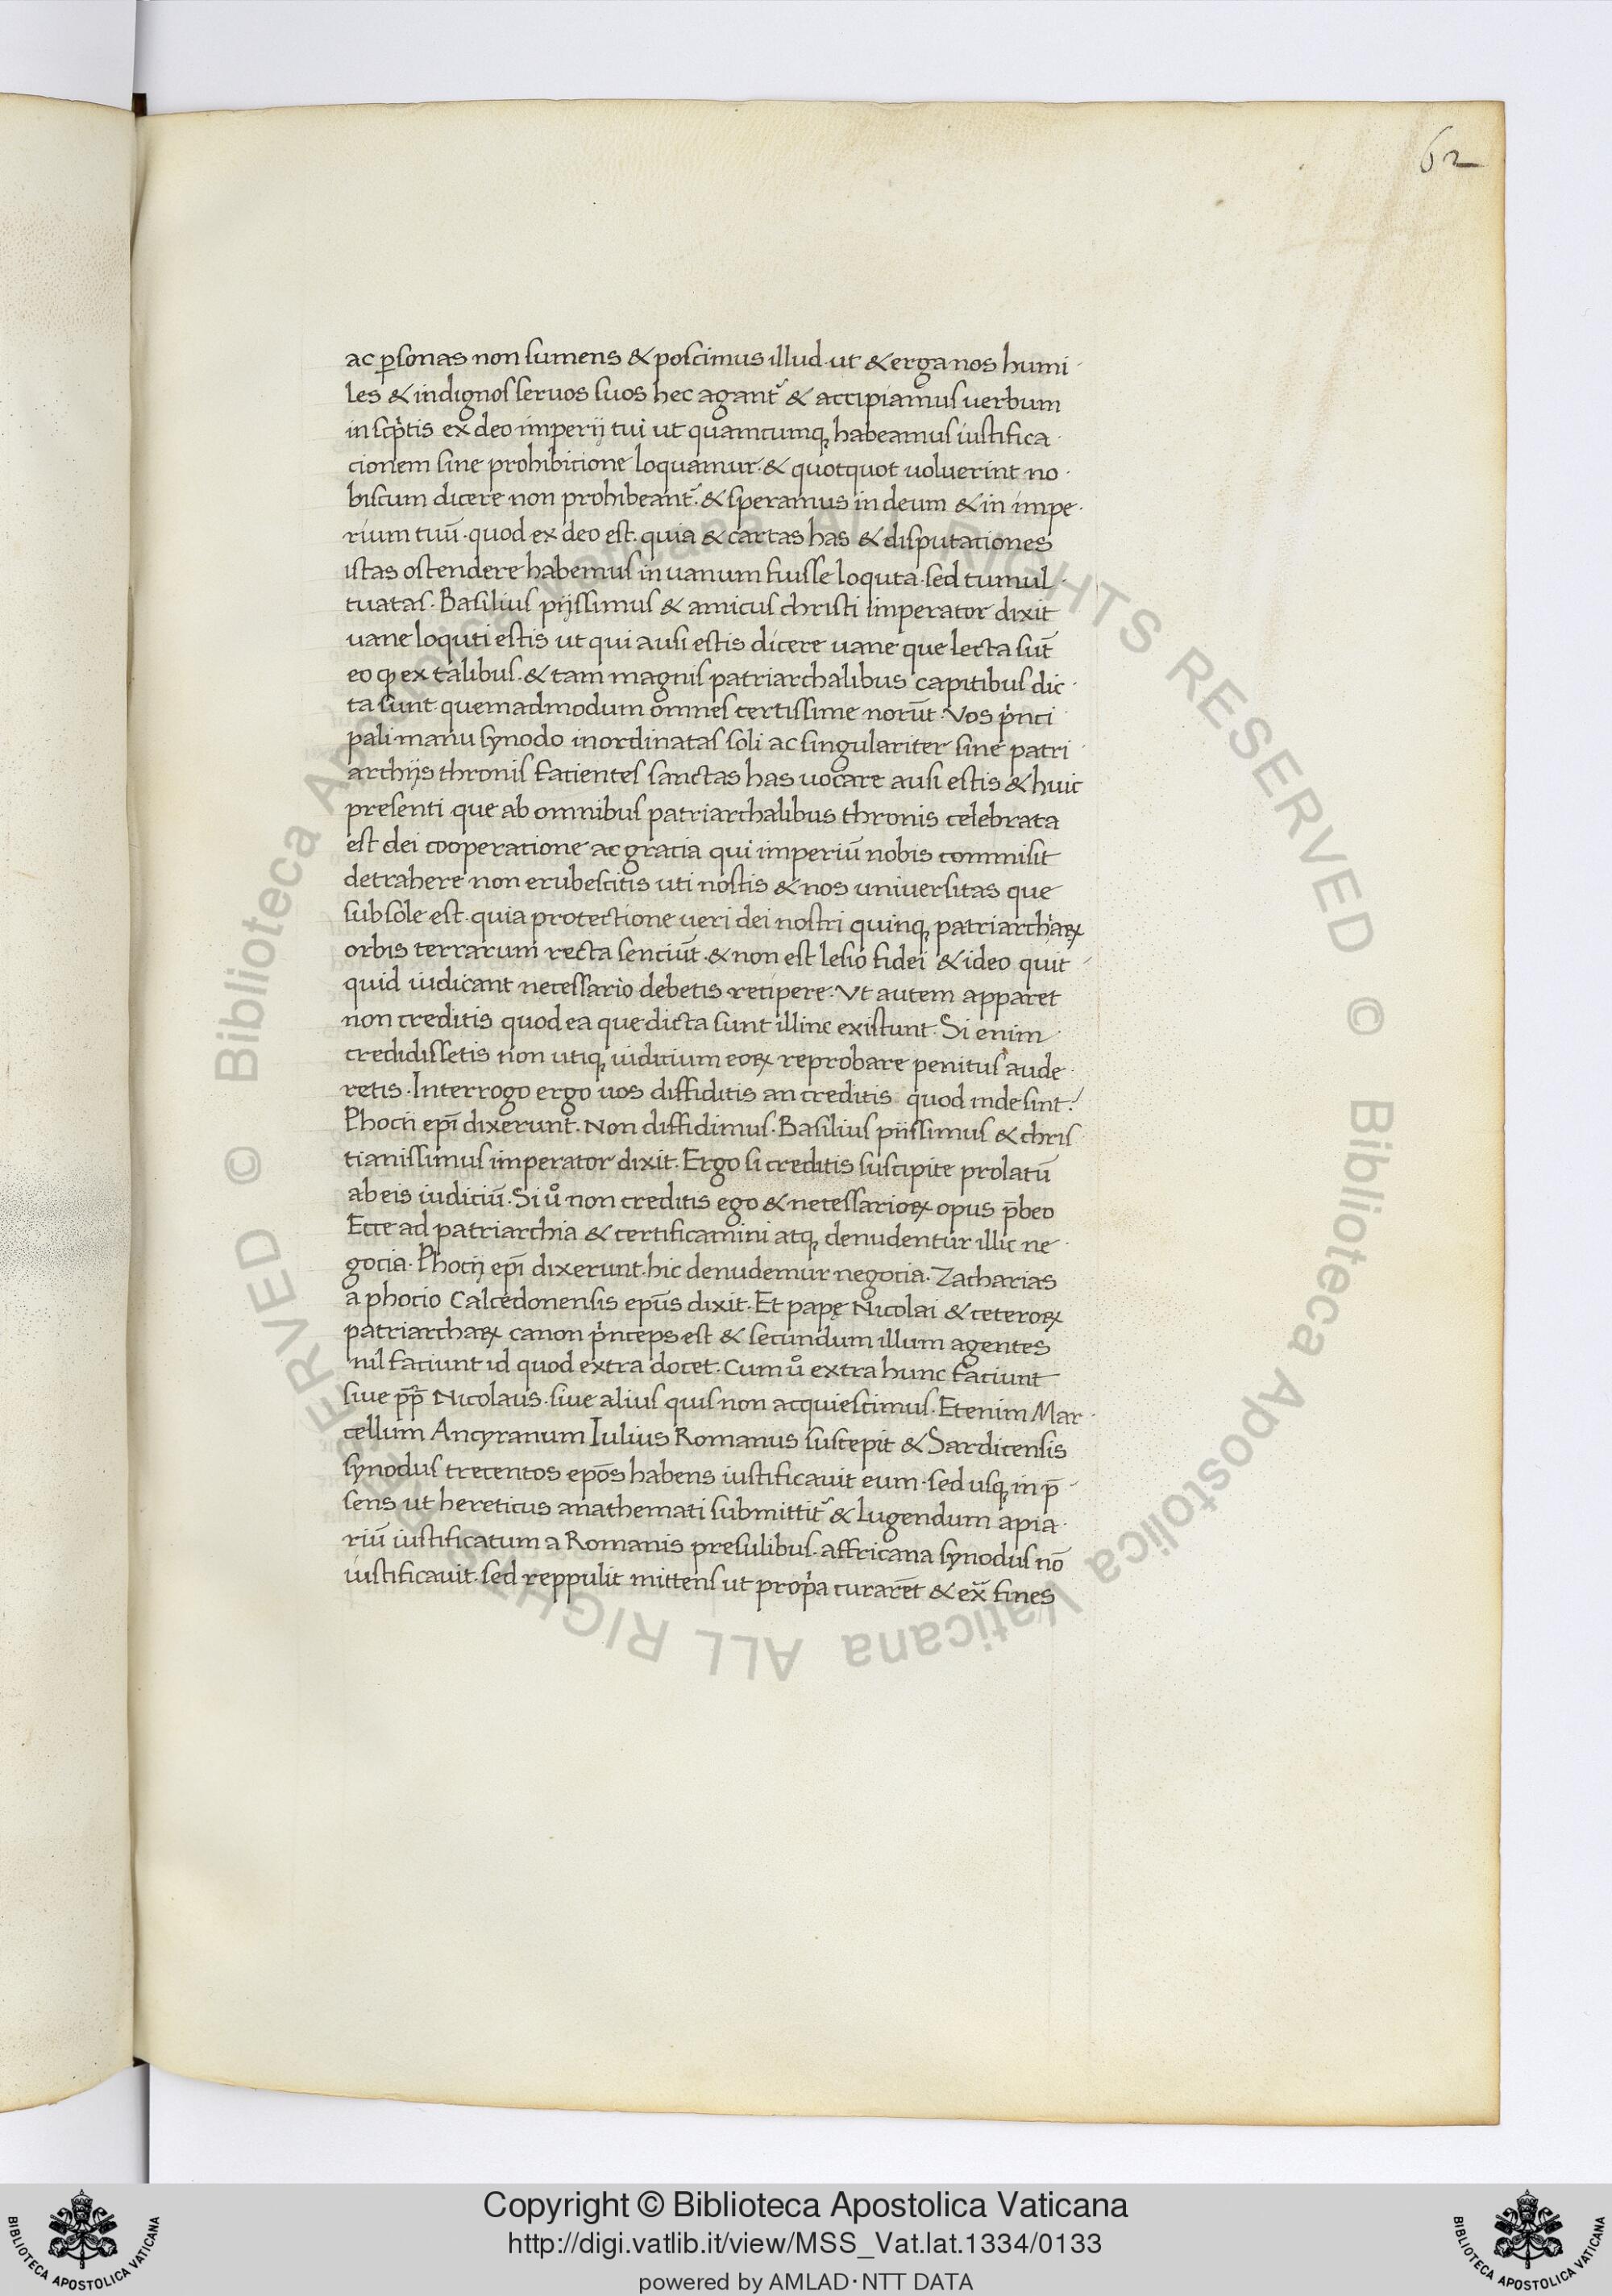 62
ac ꝑsonas non sumens & poscimus illud · ut & erga nos humi
les & indignos seruos suos hec agant᷑ & accipiamus uerbum
in scp̍tis ex deo imperij tui ut quamcumqꝫ habeamus iustifica
cionem sine prohibicione loquamur · & quotquot uoluerint no
biscum dicere non prohibeant᷑ · & speramus in deum & in impe
rium tuū · quod ex deo est · quia & cartas has & disputaciones
istas ostendere habemus in uanum fuisse loquta · sed tumul
tuatas · Basilius pijssimus & amicus christi imperator dixit
uane loquti estis ut qui ausi estis dicere uane que lecta sūt
eo ꝙ ex talibus · & tam magnis patriarchalibus capitibus dic
ta sunt · quemadmodum omnes certissime norūt · Vos p̍nci
pali manu synodo inordinatas soli ac singulariter sine patri
archijs thronis facientes sanctas has uocare ausi estis & huic
presenti que ab omnibus patriarchalibus thronis celebrata
est dei cooperacione ac gracia qui imperiū nobis commisit
detrahere non erubescitis uti nostis & nos uniuersitas que
sub sole est · quia protectione ueri dei nostri quinqꝫ patriarchaꝝ
orbis terrarum recta senciūt · & non est lesio fidei & ideo quit
quid iudicant necessario debetis recipere · Vt autem apparet
non creditis quod ea que dicta sunt illinc existunt · Si enim
credidissetis non utiqꝫ iudicium eoꝝ reprobare penitus aude
retis · Interrogo ergo uos diffiditis an creditis quod inde sint ?
Phocii epī dixerunt · Non diffidimus · Basilius piissimus & chris
tianissimus imperator dixit · Ergo si creditis suscipite prolatū
ab eis iudiciū · Si uͦ non creditis ego & necessarioꝝ opus p̄beo
Ecce ad patriarchia & certificamini atqꝫ denudentur illic ne
gocia · Phocij epī dixerunt · hic denudemur negocia · Zacharias
a phocio Calcedonensis epūs dixit · Et papę Nicolai & ceteroꝝ
patriarchaꝝ canon p̍nceps est & secundum illum agentes
nil faciunt id quod extra docet · Cum uͦ extra hunc faciunt
siue p̄p̄ Nicolaus · siue alius quis non acquiescimus · Etenim Mar
cellum Ancyranum Iulius Romanus suscepit & Sardicensis
synodus trecentos epōs habens iustificauit eum · sed usqꝫ in p̄
sens ut hereticus anathemati submittit᷑ & lugendum apia
riū iustificatum a Romanis presulibus · affricana synodus nō
iustificauit · sed reppulit mittens ut prop̍a curarēt & ex᷑ fines
© Biblioteca Apostolica Vaticana ALL RIGHTS RESERVED © Biblioteca Apostolica Vaticana ALL RIGHTS RESERVED
Copyright © Biblioteca Apostolica Vaticana
http://digi.vatlib.it/view/MSS_Vat.lat.1334/0133
powered by AMLAD·NTT DATA
BIBLIOTECA APOSTOLICA VATICANA
BIBLIOTECA APOSTOLICA VATICANA